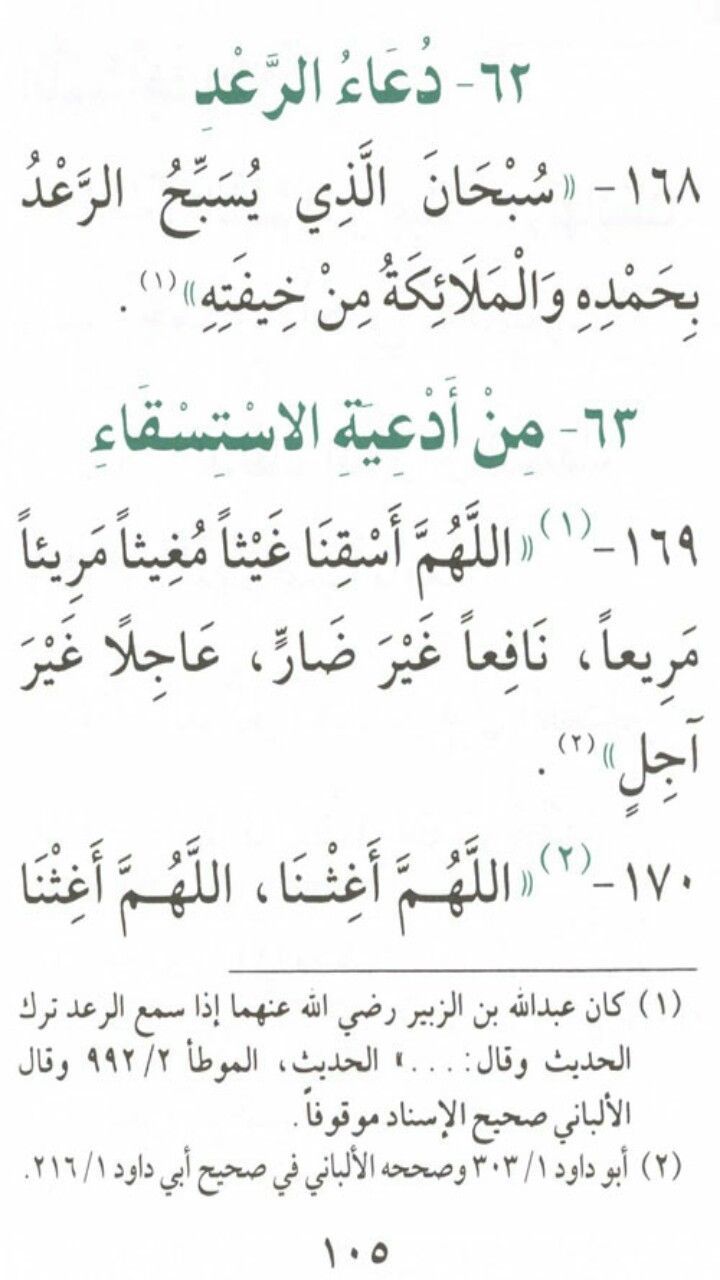 ٦٢- دُعَاءُ الرَّعْدِ
١٦٨- «سُبْحَانَ الَّذِي يُسَبِّحُ الرَّعْدُ
بِحَمْدِهِ وَالْمَلَائِكَةُ مِنْ خِيفَتِهِ»(١).
٦٣- مِنْ أَدْعِيَةِ الاسْتِسْقَاءِ
١٦٩-(١) «اللَّهُمَّ أَسْقِنَا غَيْثاً مُغِيثاً مَرِيئاً
مَرِيعاً، نَافِعاً غَيْرَ ضَارٍّ، عَاجِلًا غَيْرَ
آجِلٍ»(٢).
١٧٠-(٢) «اللَّهُمَّ أَغِثْنَا، اللَّهُمَّ أَغِثْنَا
(١) كان عبدالله بن الزبير رضي الله عنهما إذا سمع الرعد ترك
الحديث وقال: ...» الحديث، الموطأ ٢/ ٩٩٢ وقال
الألباني صحيح الإسناد موقوفاً.
(٢) أبو داود ١/ ٣٠٣ وصححه الألباني في صحيح أبي داود ١/ ٢١٦.
١٠٥